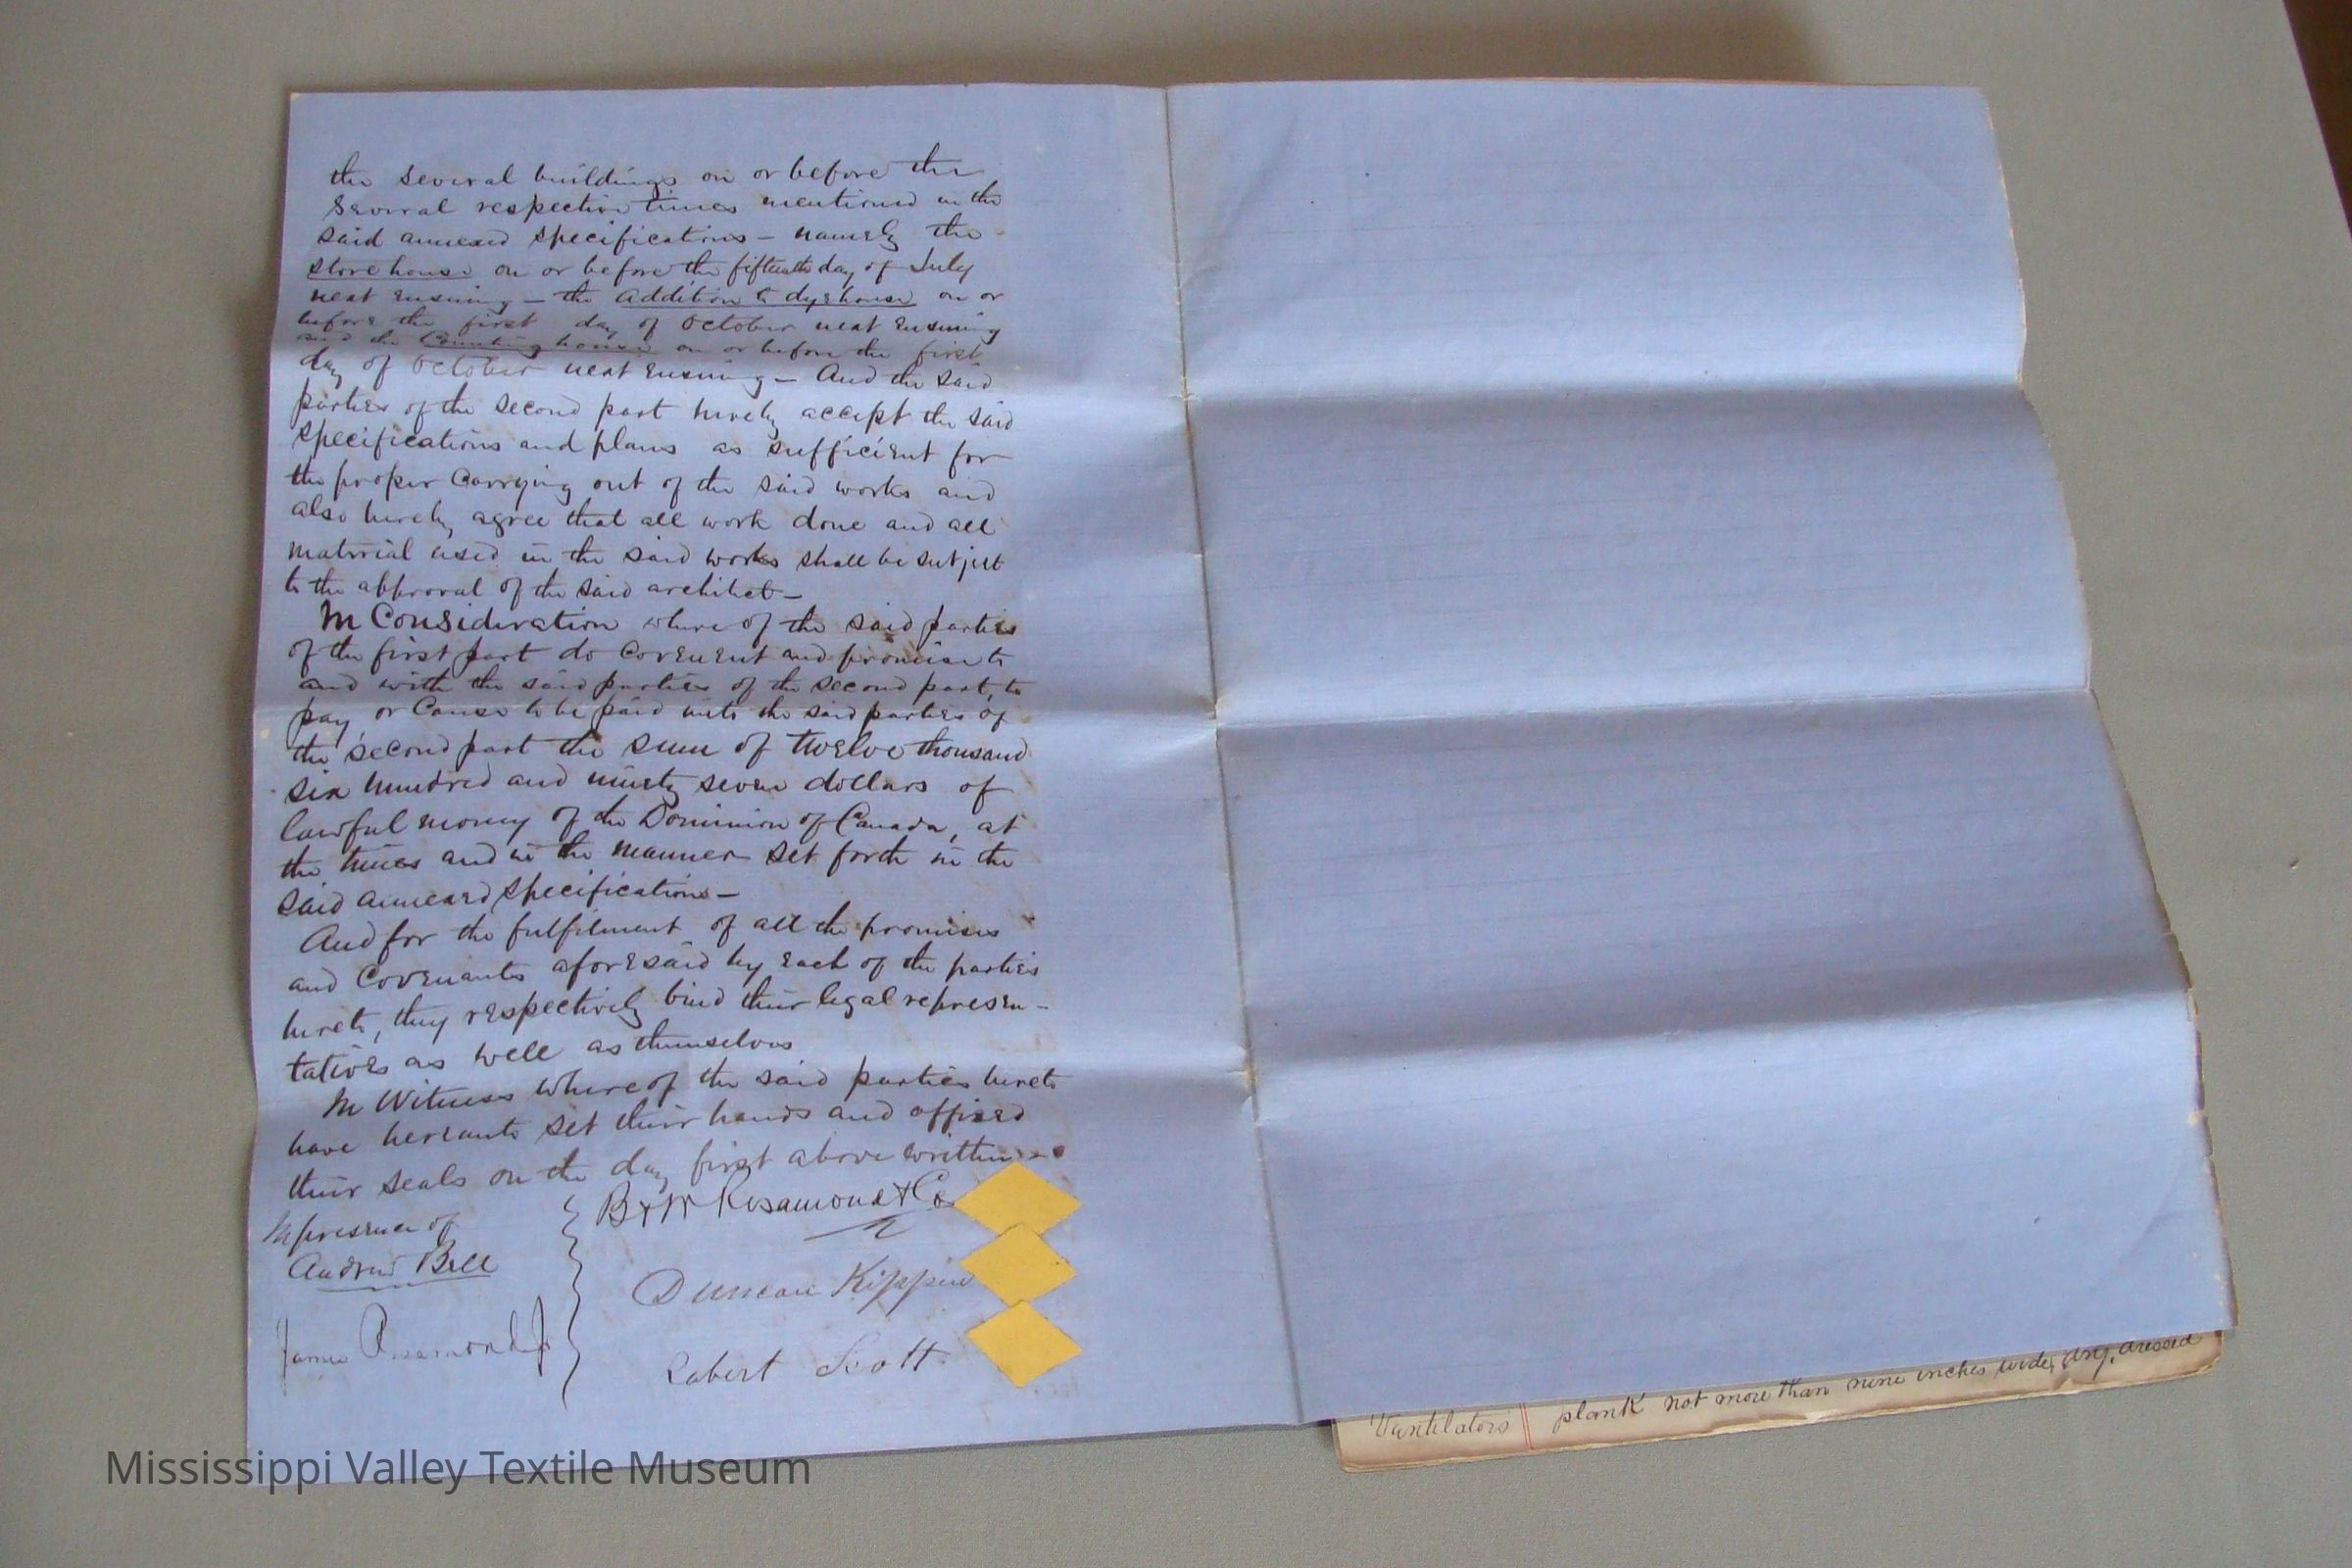 the several buildings on or before the
several respective times mentioned in the
said annexed specifications – namely the
store house on or before the fifteenth day of July
next ensuing – the addition to dyehouse on or
before the first day of October next ensuing
and the Counting house on or before the first
day of October next ensuing – And the said
parties of the second part hereby accept the said
specifications and plans as sufficient for
the proper carrying out of the said works and
also hereby agree that all work done and all
material used in the said works shall be subject
to the approval of the said architect –
In Consideration whereof the said parties
of the first part do covenent and promise to
and with the said parties of the second part, to
pay or Cause to be paid unto the said parties of
the second part the sum of twelve thousand
six hundred and ninety seven dollars of
lawful money of the Dominion of Canada, at
the times and in the manner set forth in the
said annexed specifications –
And for the fulfilment of all the promises
and Covenants aforesaid by each of the parties
hereto, they respectively bind their legal represen-
tatives as well as themselves
In Witness whereof the said parties hereto
have hereunto set their hands and affixed
their seals on the day first above written –
In presence of
Andrew Bell
James Rosamond Jr
B & W Rosamond & Co
Duncan Kippin
Robert Scott
Ventilators plank not more than nine inches wide, dry, dressed
Mississippi Valley Textile Museum